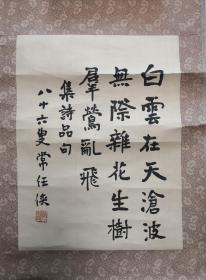 白雲在天滄波
無際雜花生樹
羣鶯亂飛
集詩品句
八十六叟常任俠